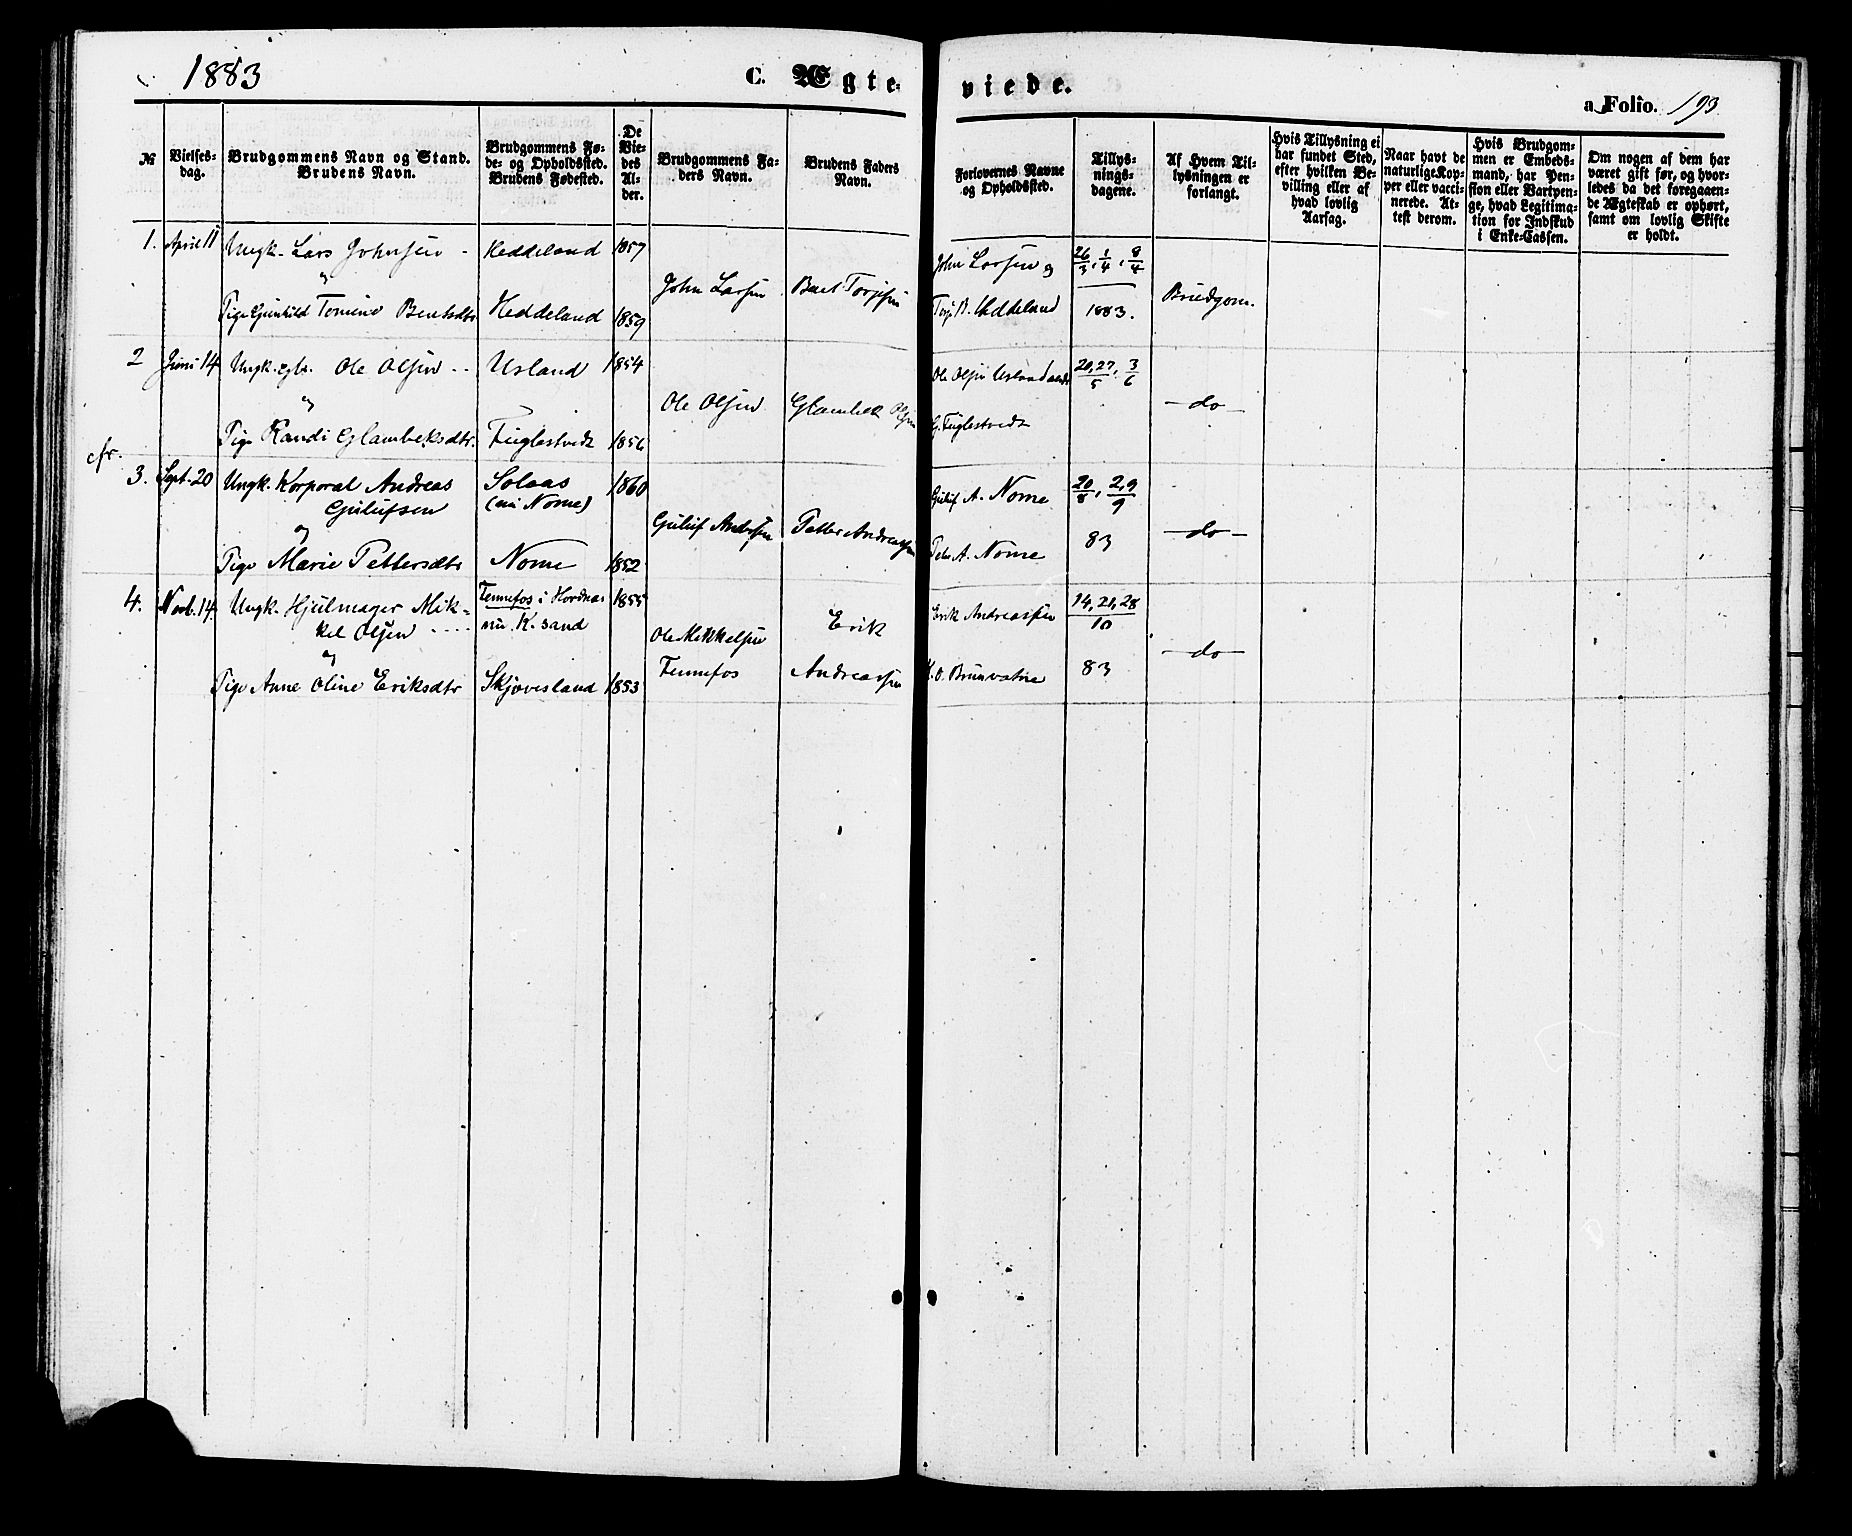 1883
C. Ægte-
viede.
a Folio. 193
№
Vielses-
dag.
Brudgommens Navn og Stand.
Brudens Navn.
Brudgommens Fø-
de- og Opholdssted.
Brudens Fødested.
De
Vie-
des
Al-
der.
Brudgommens Fa-
ders Navn.
Brudens Faders
Navn.
Forlovernes Navne
og Opholdssted.
Tillys-
nings-
dagene.
Af Hvem Til-
lysningen er
forlangt.
Hvis Tillysning ei
har fundet Sted,
efter hvilken Be-
villing eller af
hvad lovlig
Aarsag.
Naar havt de
naturlige Kop-
per eller vacci-
nerede. At-
test derom.
Hvis Brudgom-
men er Embeds-
mand, har Pen-
sion eller Vartpen-
ge, hvad Legitima-
tion for Indskud
i Enke-Cassen.
Om nogen af dem har
været gift før, og hvor-
ledes da det foregaaen-
de Ægteskab er ophørt,
samt om lovlig Skifte
er holdt.
1. April 11 Ungk. Lars Johnsen - Heddeland 1857
og
Pige Gunhild Tomine Bentsdtr Heddeland 1859
John Larsen Bent Torjesen
John Larsen og 26/3, 1/4, 8/4
Torj B. Heddeland 1883. Brudgom.
2 Juni 14 Ungk. Ole Olsen -- Usland 1854
og
Pige Randi Glambeksdtr. Fuglestvedt 1856
Ole Olsen Glambek Olsen
Ole Olsen Usland 20,27/5, 3/6
G. Fuglestvedt -do-
cfr.
3. Sept. 20 Ungk. Korporal Andreas Solaas 1860
Gulufsen (nu Nome)
og
Pige Marie Pettersdtr Nome 1852
Guluf Andersen Petter Andreassen
Guluf A. Nome 20/8, 2,9/9
Peder A. Nome 83 -do-
4. Novb. 14. Ungk. Hjulmager Mik- Fennefos i Hordnæs 1855
kel Olsen .... nu K.sand
og
Pige Anne Oline Eriksdtr Skjøvesland 1853
Ole Mikkelsen Erik
Fennefos Andreassen
Erik Andreassen 14,21,28/10
K. O. Brunvatne 83 -do-